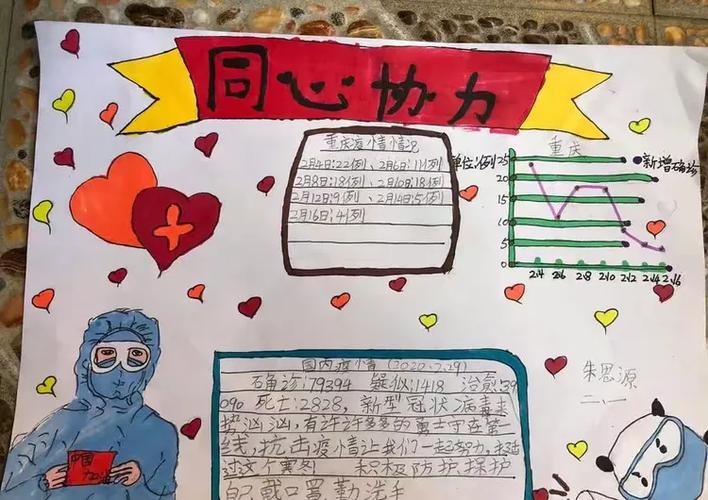 同心协力
重庆疫情情况
2月4日:22例、2月6日:11例
2月8日:18例、2月10日:18例
2月12日:9例、2月14日:5例
2月16日:4例
重庆
单位:(例)
新增确诊
25
20
15
10
5
0
2.4 2.6 2.8 2.10 2.12 2.14 2.16
国内疫情(2020.2.29)
确诊:79394 疑似:1418 治愈:39
090 死亡:2828,新型冠状病毒来
势汹汹,有许许多多的勇士守在第一
线,抗击疫情让我们一起努力,挺
过这个寒冬 积极防护,保护
自己戴口罩勤洗手
朱思源
二、一
中国
加油